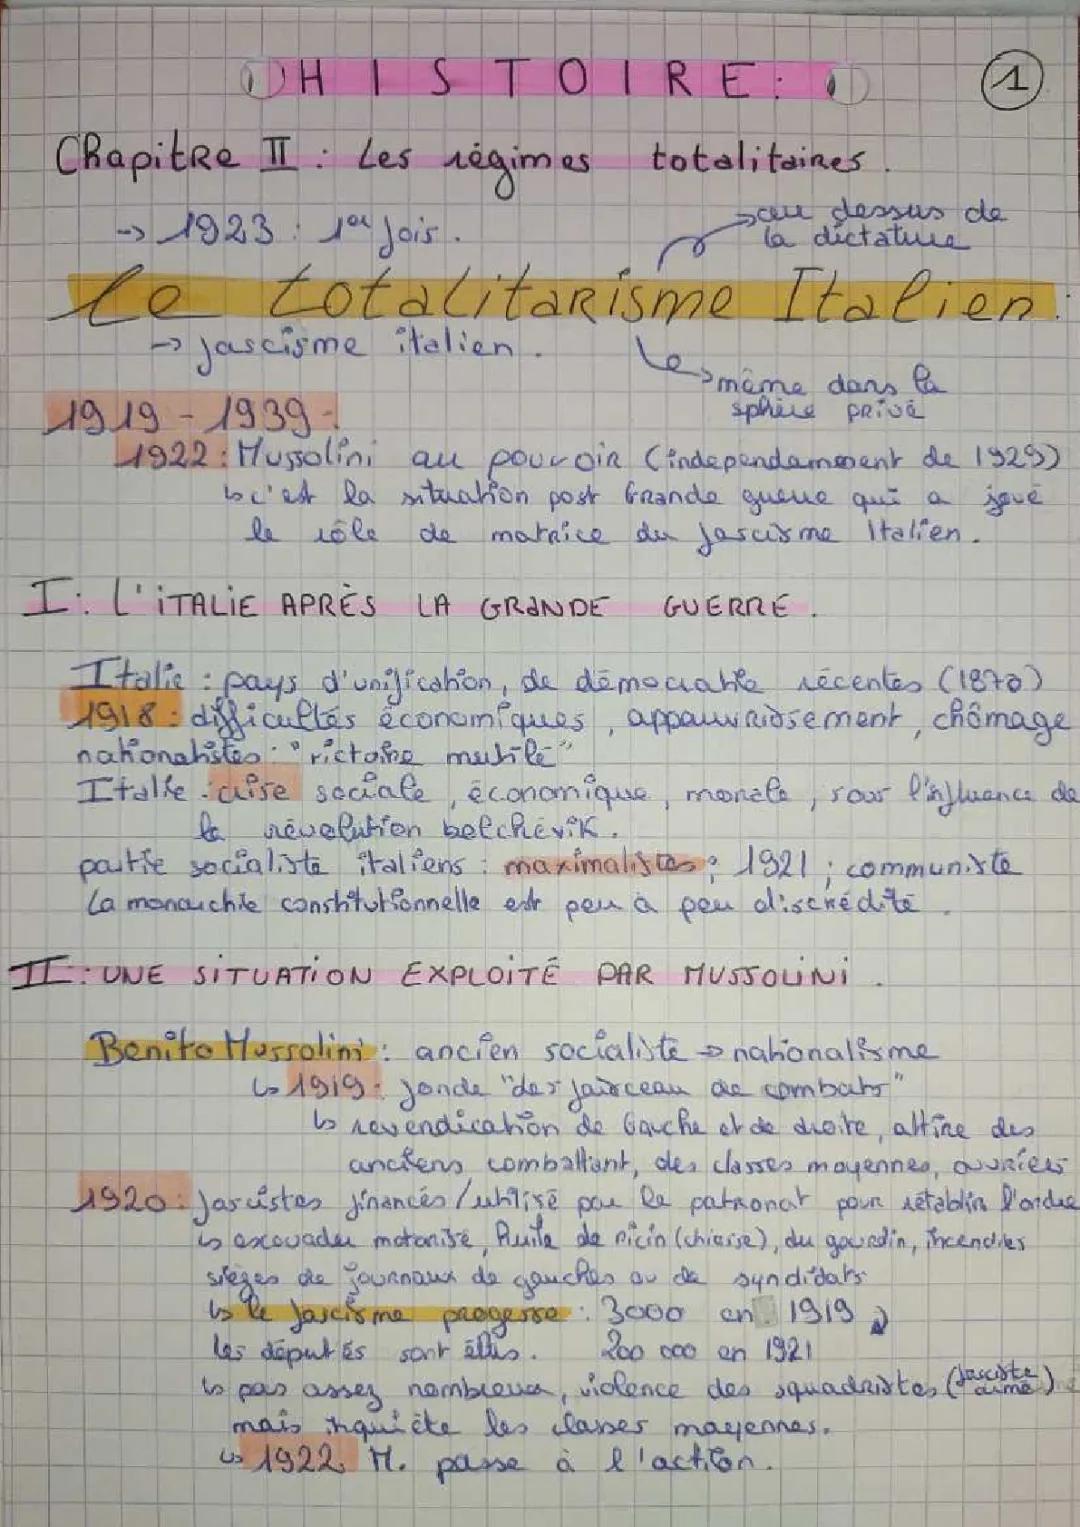 HISTOIRE:
1
Chapitre II : Les régimes totalitaires.
→ 1923 : 1er fois.
→ au dessus de
la dictature
Le totalitarisme Italien :
→ fascisme italien.
→ même dans la
sphère privé
1919 - 1939 -
1922 : Mussolini au pouvoir (independamment de 1929)
↳ c'est la situation post Grande guerre qui a joué
le rôle de matrice du fascisme Italien.
I : L'ITALIE APRÈS LA GRANDE GUERRE.
Italie : pays d'unification, de démocratie récentes (1870)
1918 : difficultés économiques, appauvrissement, chômage
nationalistes : "victoire mutilé"
Italie : crise sociale, économique, morale, sous l'influence de
la révolution bolchévik.
partie socialiste italiens : maximalistes ; 1921 : communiste
La monarchie constitutionnelle est peu à peu discrédité.
II : UNE SITUATION EXPLOITÉ PAR MUSSOLINI.
Benito Mussolini : ancien socialiste → nationalisme
↳ 1919 : fonde "des faisceau de combats"
↳ revendication de Gauche et de droite, attire des
anciens combattant, des classes moyennes, ouvriers
1920 : fascistes financés/utilisé par le patronat pour rétablir l'ordre
↳ escouades motorisé, huile de ricin (chiasse), du gourdin, incendies
sièges de journaux de gauches ou de syndicats
↳ le fascisme progresse : 3000 en 1919
les députés sont élus. 200 000 en 1921
↳ pas assez nombreux, violence des squadristes (fasciste armé)
mais inquiète les classes moyennes.
↳ 1922 M. passe à l'action.